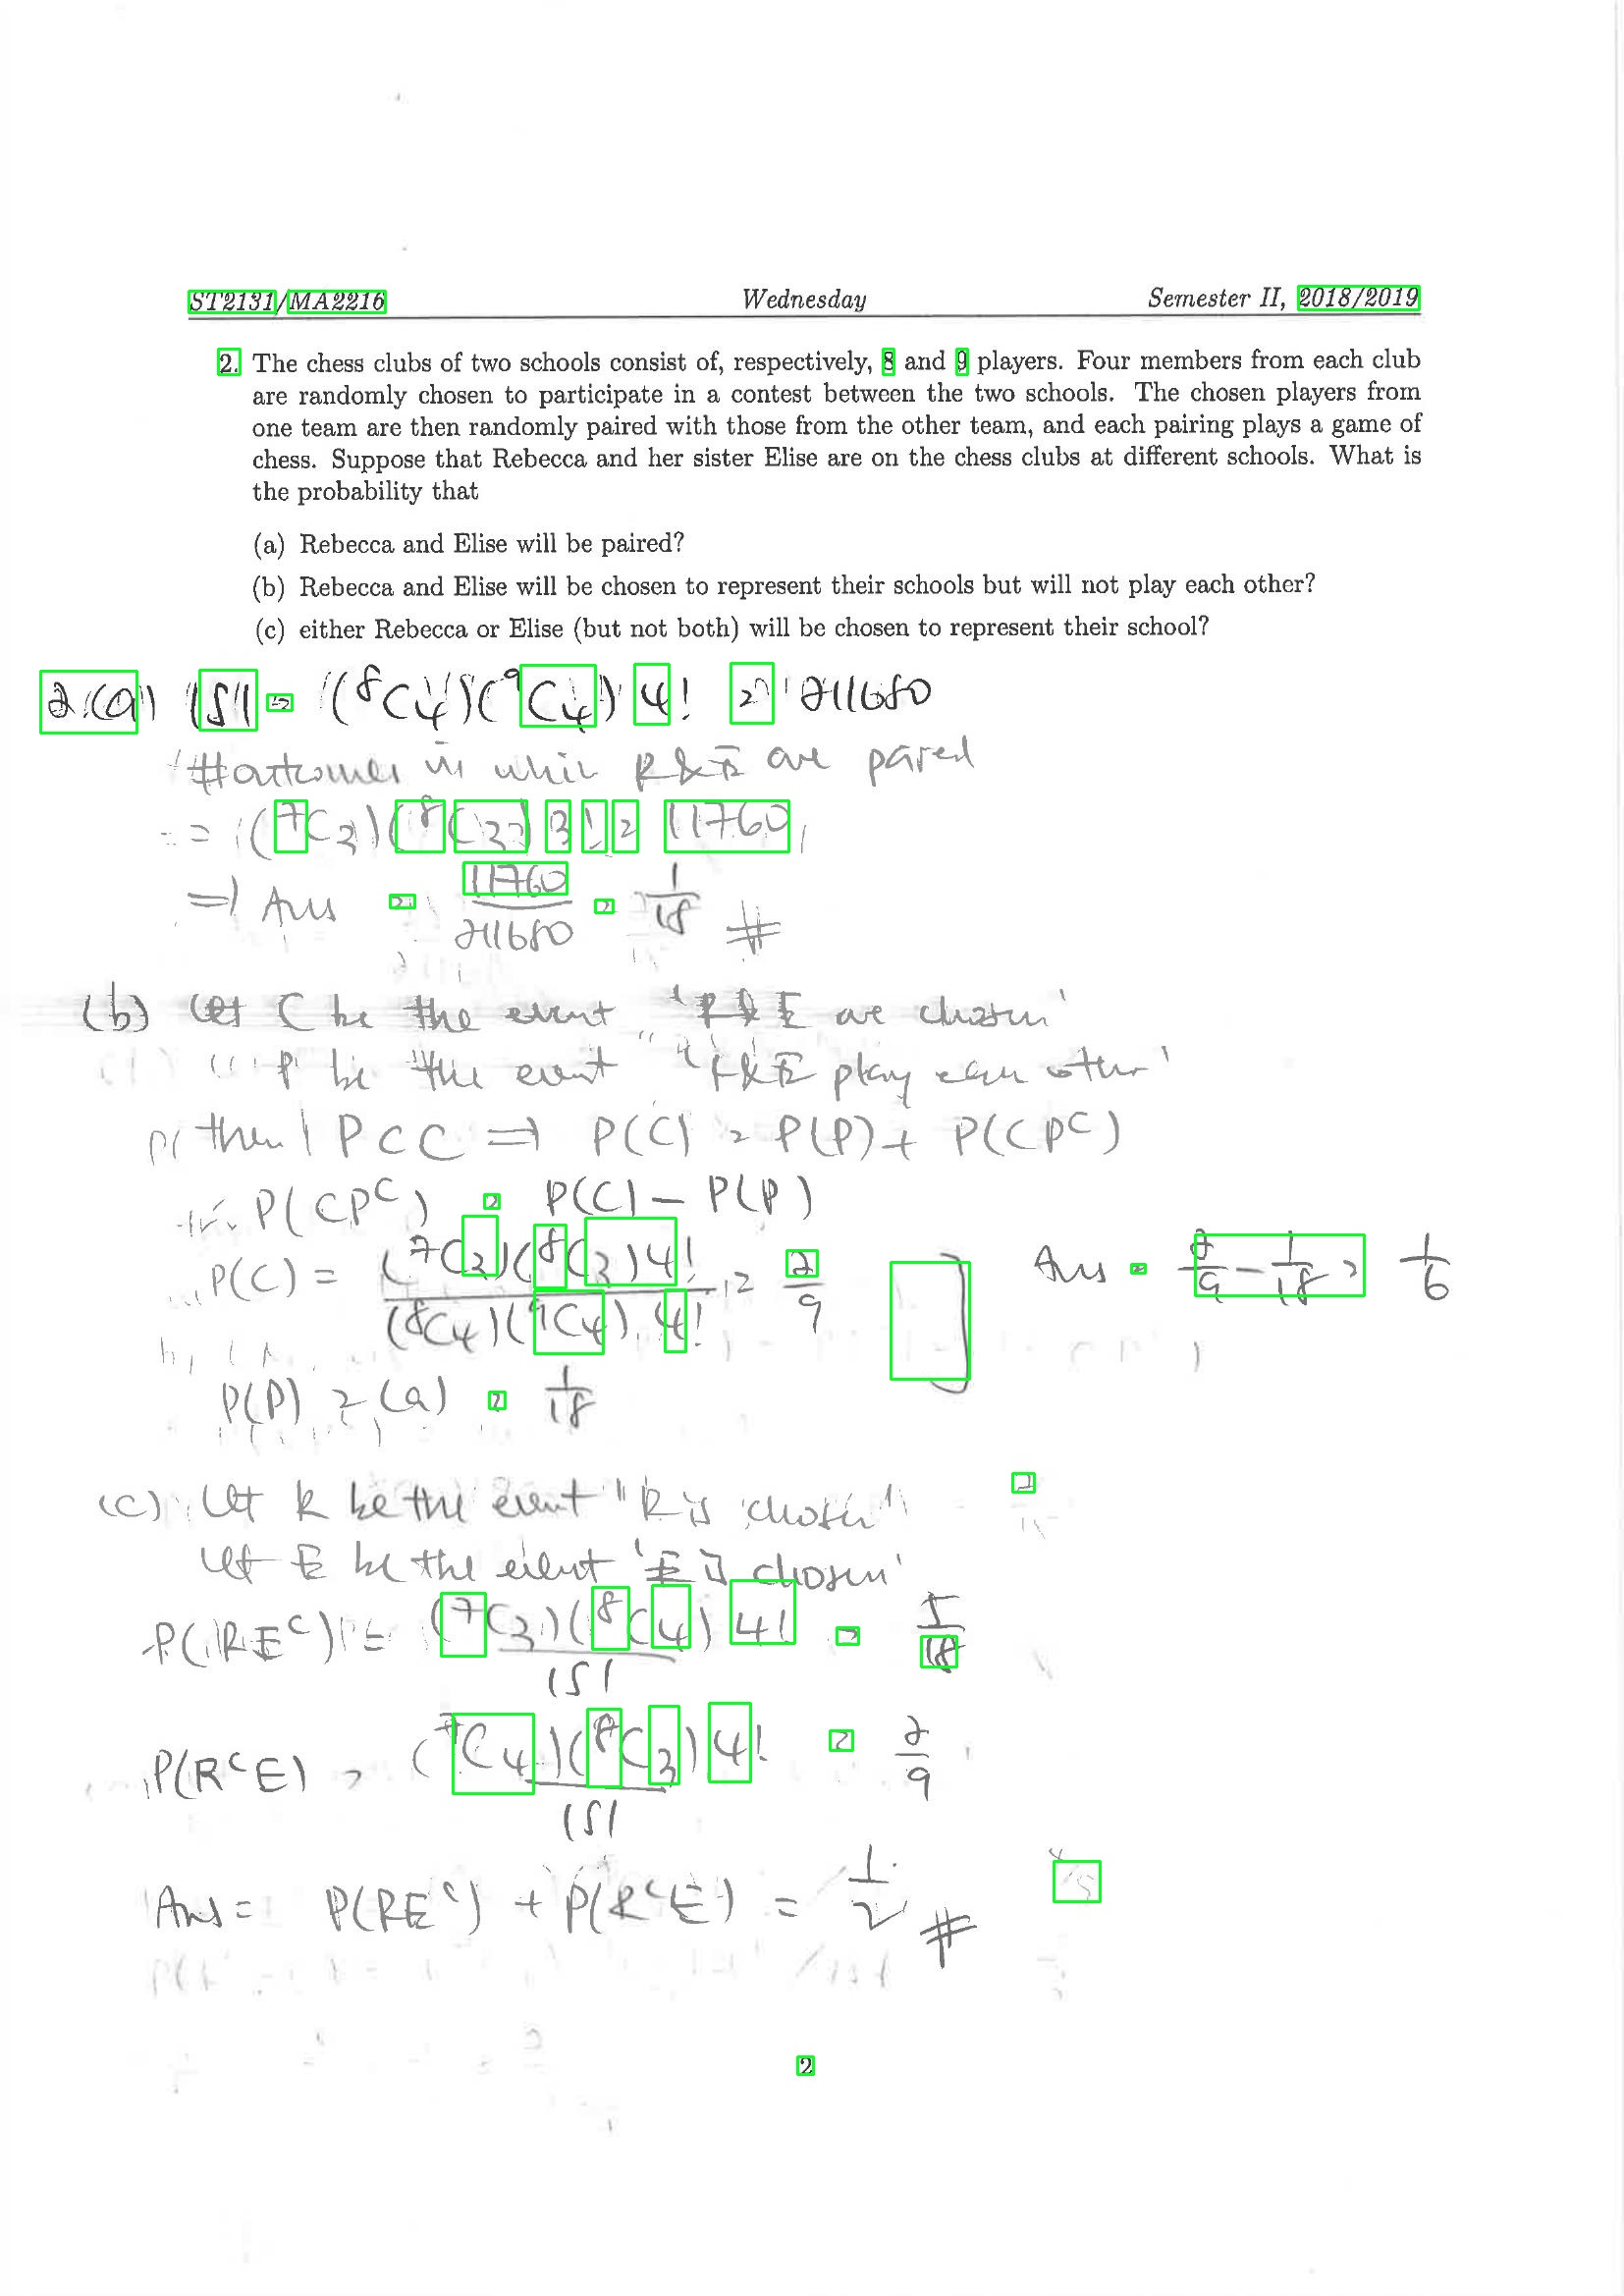 ST2131/MA2216 Wednesday Semester II, 2018/2019
2. The chess clubs of two schools consist of, respectively, 8 and 9 players. Four members from each club
are randomly chosen to participate in a contest between the two schools. The chosen players from
one team are then randomly paired with those from the other team, and each pairing plays a game of
chess. Suppose that Rebecca and her sister Elise are on the chess clubs at different schools. What is
the probability that
(a) Rebecca and Elise will be paired?
(b) Rebecca and Elise will be chosen to represent their schools but will not play each other?
(c) either Rebecca or Elise (but not both) will be chosen to represent their school?
2.(a) |S| = (⁸C₄)(⁹C₄) 4! = 211680
# outcomes in whic R & E are paired
= (⁷C₃)(⁸C₃) 3! = 11760
⇒ Ans = 11760/211680 = 1/18 #
(b) Let C be the event "R & E are chosen"
" P be the event "R & E play each other"
then P ⊂ C ⇒ P(C) = P(P) + P(CPᶜ)
P(CPᶜ) = P(C) − P(P)
P(C) = (⁷C₃)(⁸C₃)4!/(⁸C₄)(⁹C₄).4! = 2/9 ] Ans = 2/9 − 1/18 = 1/6
P(P) = (a) = 1/18
(c) Let R be the event "R is chosen"
Let E be the event "E is chosen"
P(REᶜ) = (⁷C₃)(⁸C₄) 4!/|S| = 5/18
P(RᶜE) = (⁷C₄)(⁸C₃) 4!/|S| = 2/9
Ans = P(REᶜ) + P(RᶜE) = 1/2 #
2